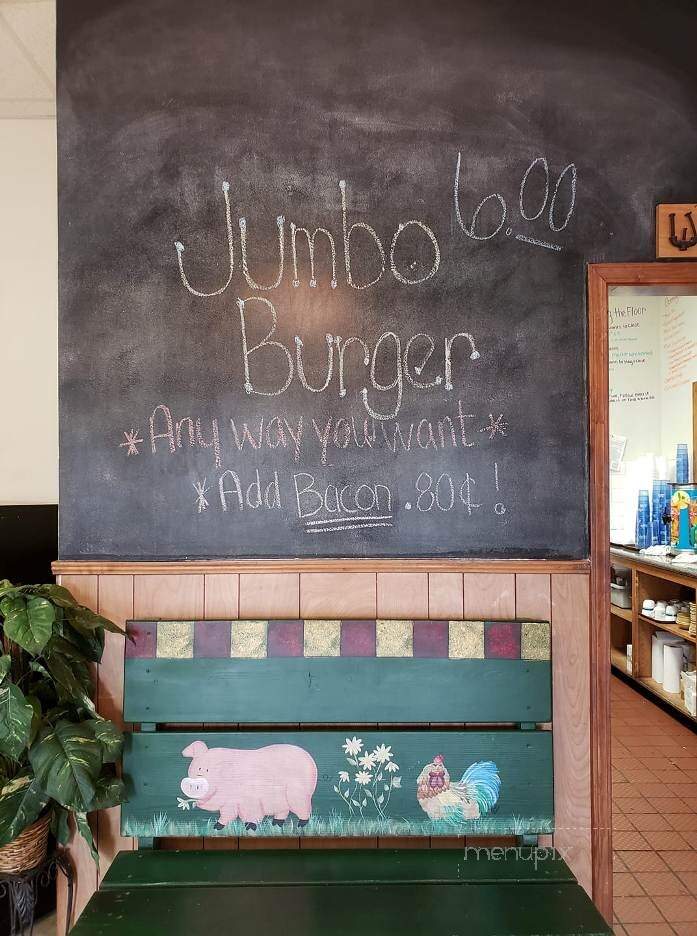 Jumbo 6.00
Burger
*Any way you want*
*Add Bacon .80¢!
the Floor
menupix